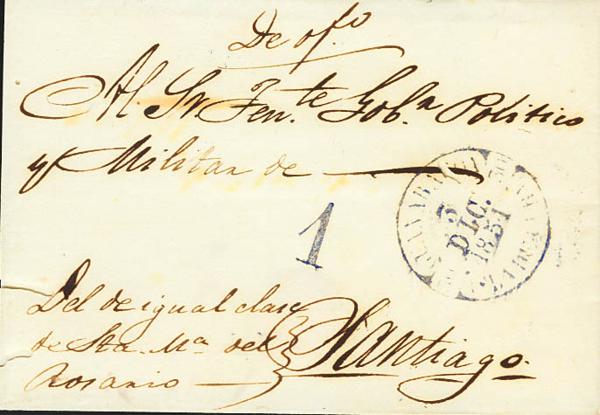 De ofo
Al Sr Ten.te Gob.n Politico
y Militar de
3
DIC.
1851
1
Del de igual clase
de Sta Ma del
Rosario
Santiago.